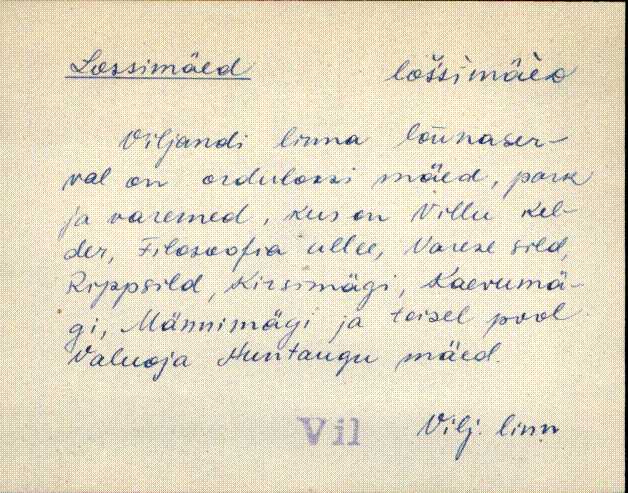 Lossimäed lošsimäèᴅ
Viljandi linna lõunaser-
val on ordulossi mäed, park
ja varemed, kus on Villu kel-
der, Filosoofia allee, Varese sild,
Rippsild, Kirsimägi, Kaevumä-
gi, Männimägi ja teisel pool
Valuoja Huntaugu mäed.
Vil Vilj. linn